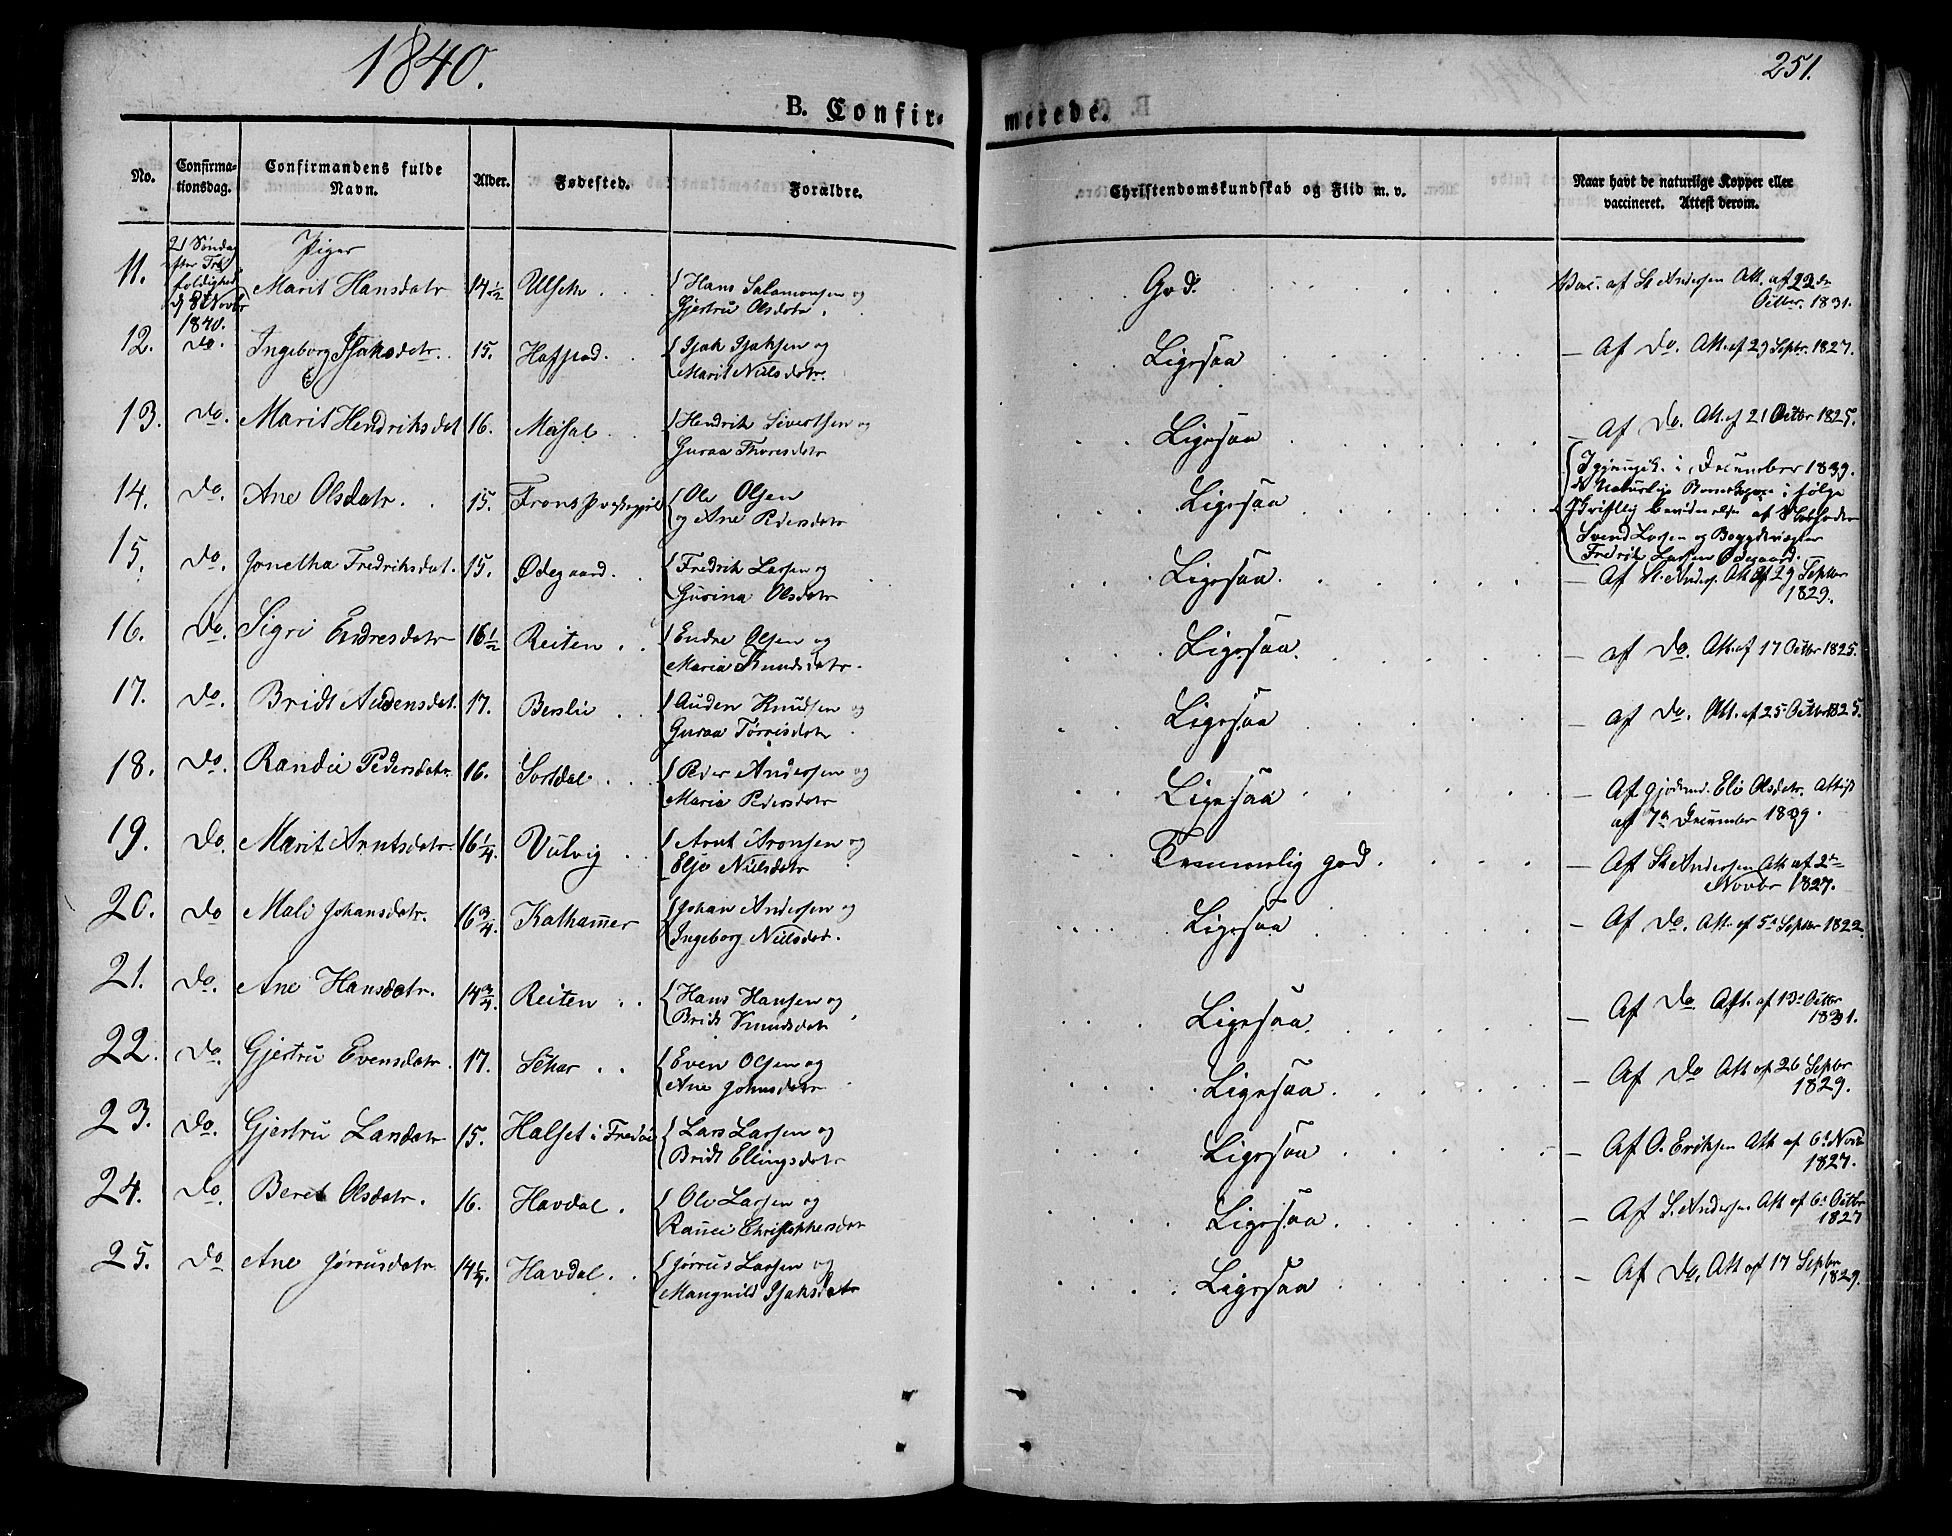 1840.
251.
B. Confir-
merede.
No.
Confirma-
tionsdag.
Confirmandens fulde
Navn.
Alder.
Fødested.
Forældre.
Christendomskundskab og Flid m. v.
Naar havt de naturlige Kopper eller
vaccineret. Attest derom.
21 Søndag
efter Tre-
foldighed
d 8t Novbr
1840.
Piger
11. Marit Hansdatr 14 1/2 { Hans Salamonsen og God. Vac. af St Andersen Att. af 22de
Gjertru Olsdatr. Octbr. 1831.
12. do. Ingeborg Isaksdatr. 15. { Isak Isaksen og Ligesaa – Af do. Att. af 29 Septbr. 1827.
Marit Nielsdatr.
13. do. Marit Hendriksdat 16. { Hendrik Sivertsen og Ligesaa – Af do. Att. af 21 Octbr 1825.
Guraa Thoresdatr
14. do. Ane Olsdatr. 15. { Ole Olsen Ligesaa { i December 1839.
og Ane Pedersdatr de Naturlige i følge
Skriftlig af
Svend Larsen og
Fredrik Larsen Ødegaard.
15. do. Jonetha Fredriksdat. 15. Ødegaard. { Fredrik Larsen og Ligesaa. – Af St. Anders. Att af 29 Septbr
Gurina Olsdatr 1829.
16. do. Sigri Endresdatr 16 1/2 Reiten { Endre Olsen og Ligesaa. – af do. Att. af 17 Octbr 1825.
Maria Knudsdatr.
17. do. Bridt Audensdat. 17. Berslie { Auden Knudsen og Ligesaa – af do. Att. af 25 Octbr 1825.
Guraa Tørrisdatr
18. do. Randie Pedersdatr. 16. Sordal { Peder Andersen og Ligesaa – Af gjordmd. Eli Olsdatr. Attest
Maria Pedersdatr af 7de December 1839.
19. do. Marit Arntsdatr. 16 1/4. Vulvig { Arnt Aronsen og Temmelig god. – Af St Andersen Att af 2de
Elje Nielsdatr Novbr 1827.
20. do Mali Johansdatr. 16 3/4 Kathammer { Johan Andersen og Ligesaa – Af do. Att. af 5te Septbr 1822.
Ingeborg Nielsdat.
21. do. Ane Hansdatr. 14 3/4. Reiten { Hans Hansen og Ligesaa – Af do Att. af 13de Octbr
Bridt Knudsdatr 1831.
22. do. Gjertru Evensdatr 17. { Even Olsen og Ligesaa. – Af do Att af 26 Septbr
Ane Johnsdatr 1829.
23. do. Gjertru Larsdatr 15. Halset i Fredøe { Lars Larsen og Ligesaa – Af O. Eriksen Att af 6te Novbr
Bridt Ellingsdatr 1827.
24. do. Beret Olsdatr. 16. Havdal. { Ole Larsen og Ligesaa. – Af S. Andersen Att af 6te Octbr
Christophersdatr 1827
25. do Ane Jørrusdatr. 14 1/4. Havdal. { Jørrus Larsen og Ligesaa – Af do. Att af 17 Septbr
Mangnild Isaksdatr 1829.